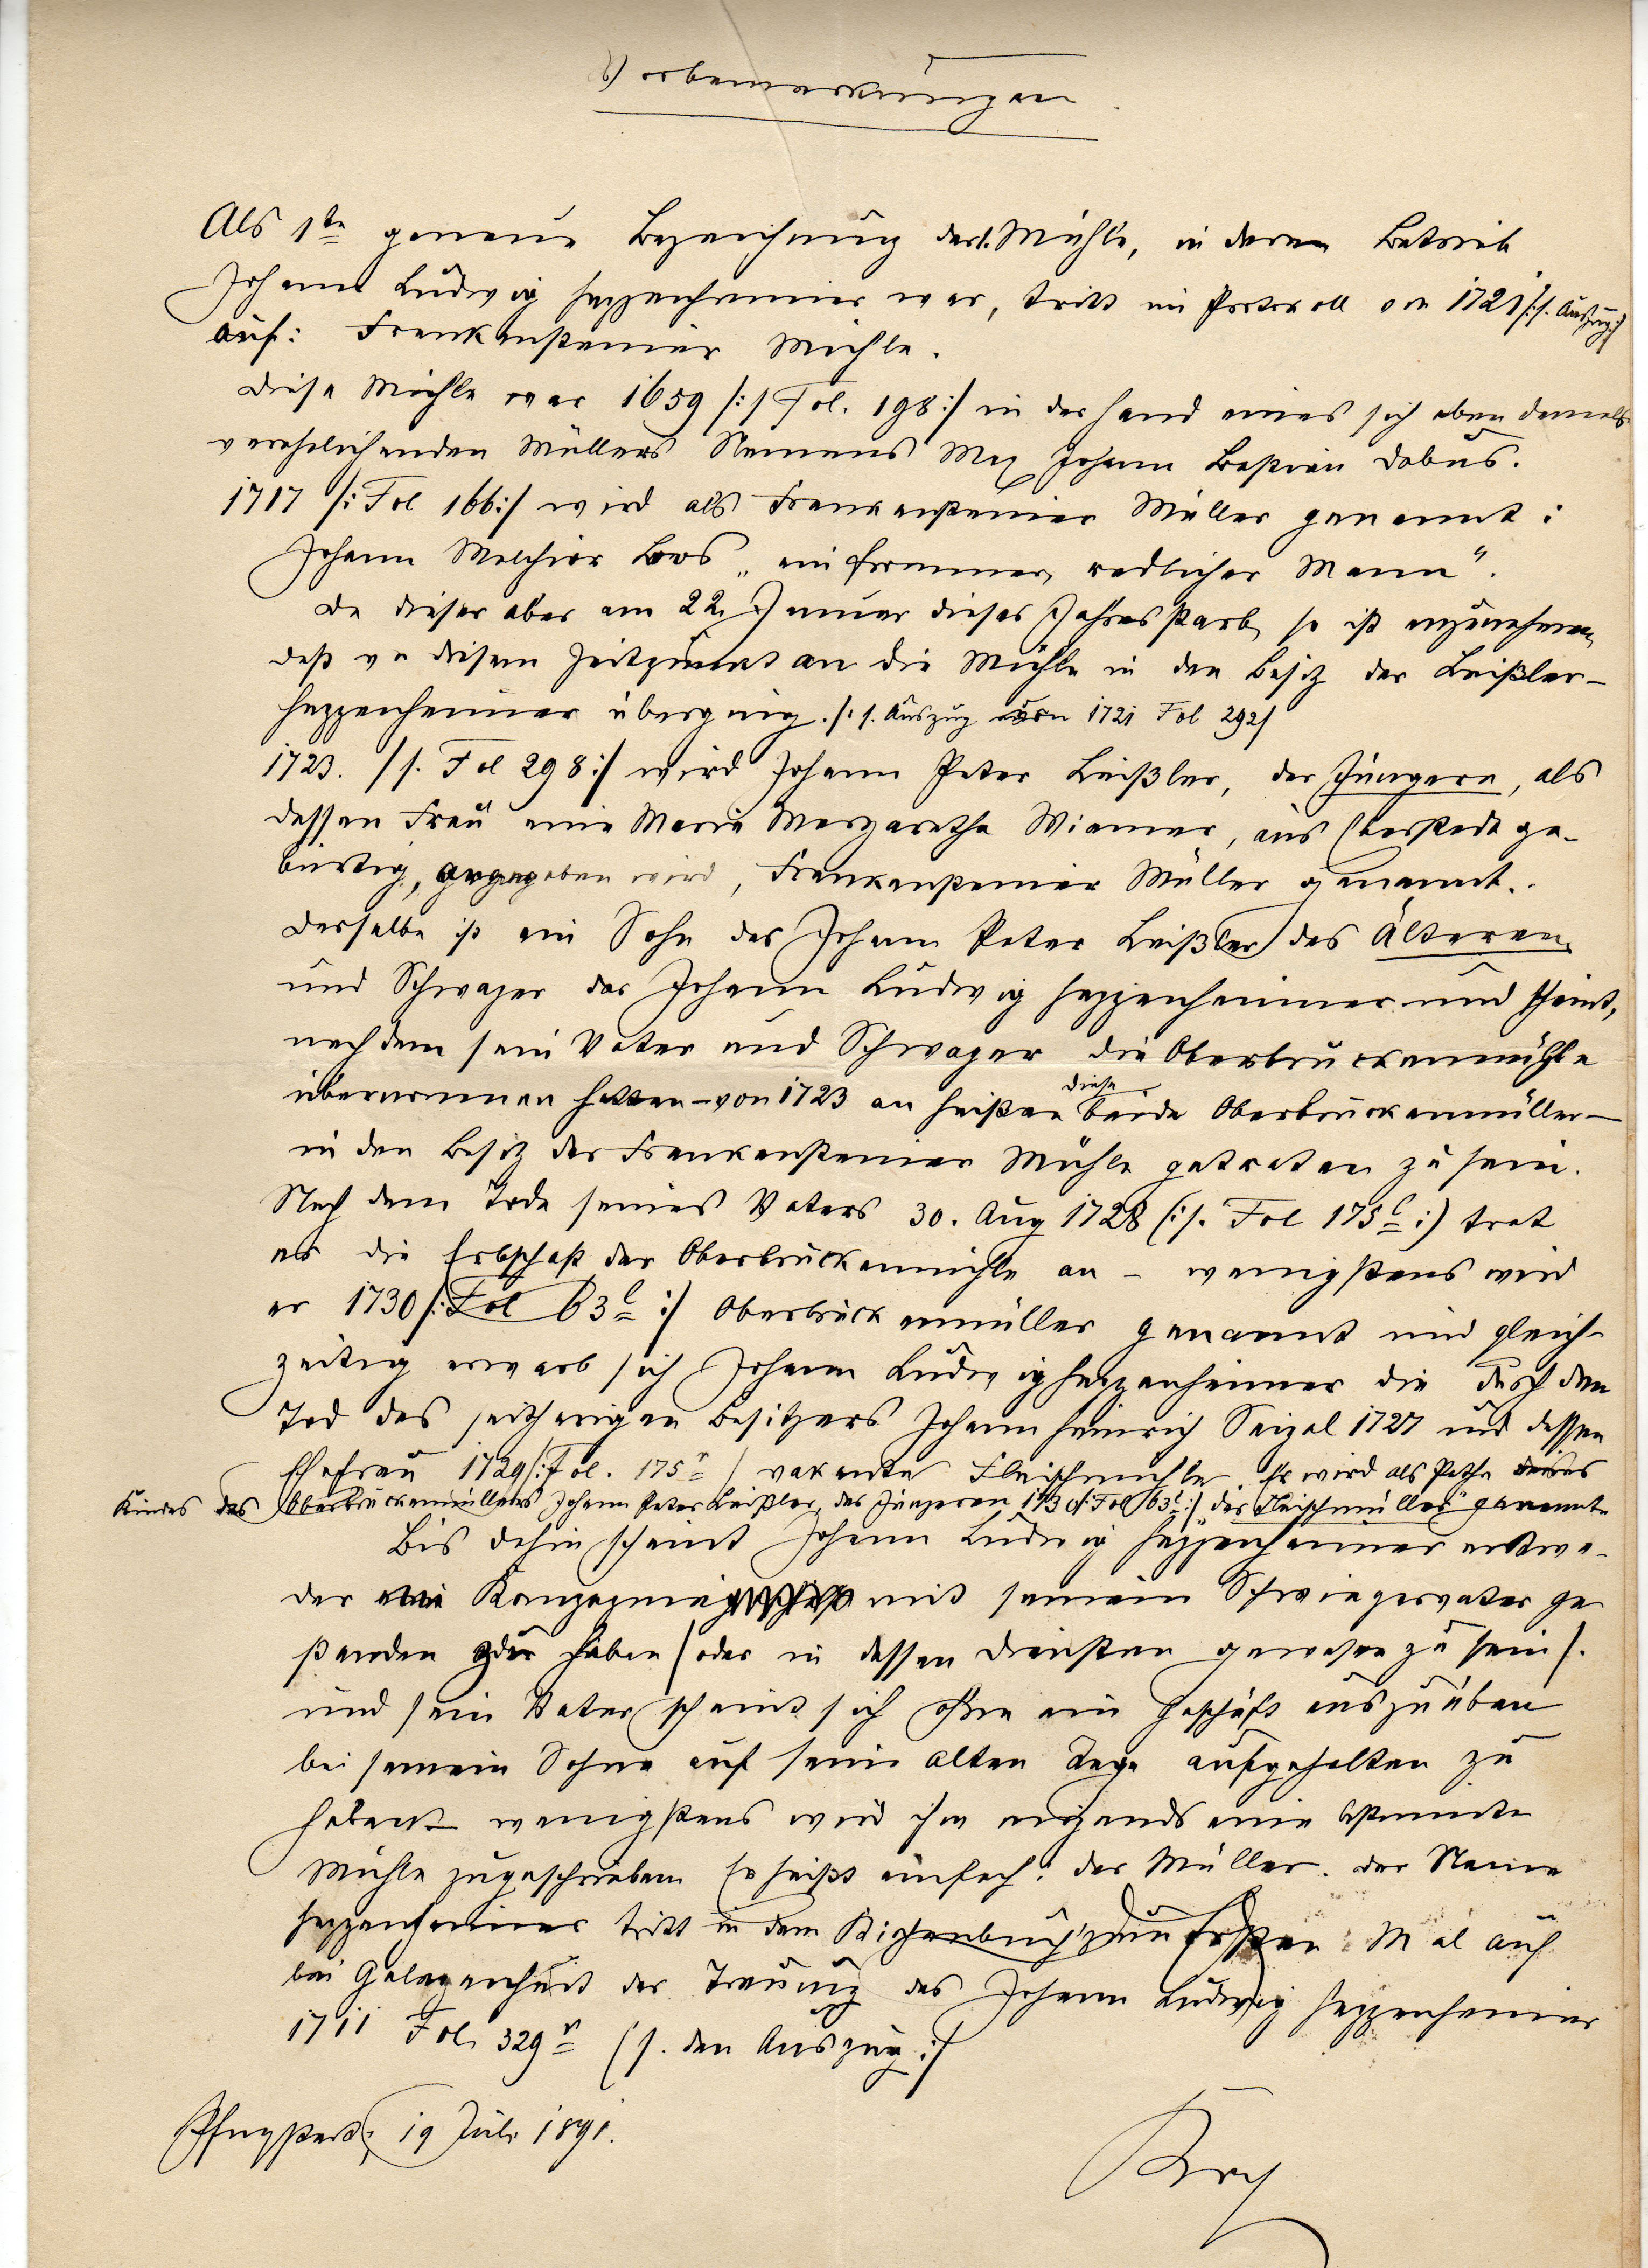 Vorbemerkungen
Als 1te genaue Bezeichnung der Mühle, in deren Betrieb
Johann Ludwig Heppenheimer war, tritt im Protokoll von 1721 /: s. Auszug :/
auf: Frankensteiner Mühle.
Diese Mühle war 1659 /: s Fol. 198 :/ in der Hand eines sich eben damals
verehelichenden Müllers Namens Mag Johann Bastian Dabus.
1717 /: Fol 166 :/ wird als Frankensteiner Müller genannt:
Johann Melchior Bos „ein frommer, redlicher Mann“.
Da dieser aber am 22. Januar dieses Jahres starb, so ist anzunehmen,
daß von diesem Zeitpunkt an die Mühle in den Besitz der Leißler-
Heppenheimer überging. /: s. Auszug von 1721 Fol 292/
1723. / s. Fol 298 :/ wird Johann Peter Leißler, der Jüngere, als
dessen Frau eine Maria Margaretha Wiemer, aus Eberstadt ge-
bürtig, angegeben wird, Frankensteiner Müller genannt.
Derselbe ist ein Sohn des Johann Peter Leißler des Älteren
und Schwager des Johann Ludwig Heppenheimer und scheint,
nachdem sein Vater und Schwager die Oberbruckenmühle
übernommen hatten – von 1723 an heißen diese beide Oberbruckenmüller –
in den Besitz der Frankensteiner Mühle getreten zu sein.
Nach dem Tode seines Vaters 30. Aug 1728 (: s. Fol 175 b :) trat
er die Erbschaft der Oberbruckenmühle an – wenigstens wird
er 1730 /: Fol 63 b :/ Oberbruckenmüller genannt und gleich-
zeitig erwarb sich Johann Ludwig Heppenheimer die durch den
Tod des seitherigen Besitzers Johann Heinrich Seizel 1727 und dessen
Ehefrau 1729 /: Fol. 175 r / vakante Fleischmühle. Er wird als Pathe eines
Kindes des Oberbruckenmüllers Johann Peter Leißler, des Jüngeren, 1730 /: Fol 63 b :/ „der Fleischmüller“ genannt.
Bis dahin scheint Johann Ludwig Heppenheimer entwe-
der in Kompagnie mit seinem Schwiegervater ge
standen zu haben / oder in dessen Diensten gewesen zu sein /.
und sein Vater scheint sich ohne ein Geschäft auszuüben
bei seinem Sohne auf seine alten Tage aufgehalten zu
haben – wenigstens wird ihm nirgends eine bestimmte
Mühle zugeschrieben. Er heißt einfach: der Müller. Der Name
Heppenheimer tritt in dem Kirchenbuch zum Ersten Mal auf
bei Gelegenheit der Trauung des Johann Ludwig Heppenheimer
1711 Fol. 329 r (s. den Auszug :/
Pfungstadt, 19 Juli 1891.